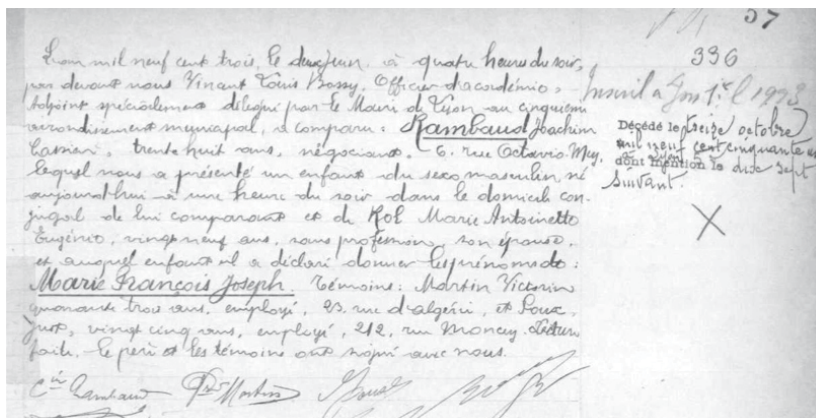 37
336
L'an mil neuf cent trois, le deux juin à quatre heures du soir,
par devant nous Vincent Louis Bossy, Officier d'académie,
Adjoint spécialement délégué par le Maire de Lyon au cinquième
arrondissement municipal, a comparu: Rambaud Joachim
Cassien, trente huit ans, négociant, 6, rue Octavio Mey,
lequel nous a présenté un enfant du sexe masculin né
aujourd'hui à une heure du soir dans le domicile con-
jugal de lui comparant et de Marie Antoinette
Eugénie, vingt neuf ans, sans profession, son épouse,
et auquel enfant il a déclaré donner les prénoms de:
Marie François Joseph. Témoins: Martin Victorin
quarante trois ans, employé, 23, rue d'algérie, et
Just, vingt cinq ans, employé, 212, rue Moncey. Lecture
faite, le père et les témoins ont signé avec nous.
Rambaud Martin
Décédé le treize octobre
mil neuf cent cinquante
dont mention le dix sept
suivant.
X